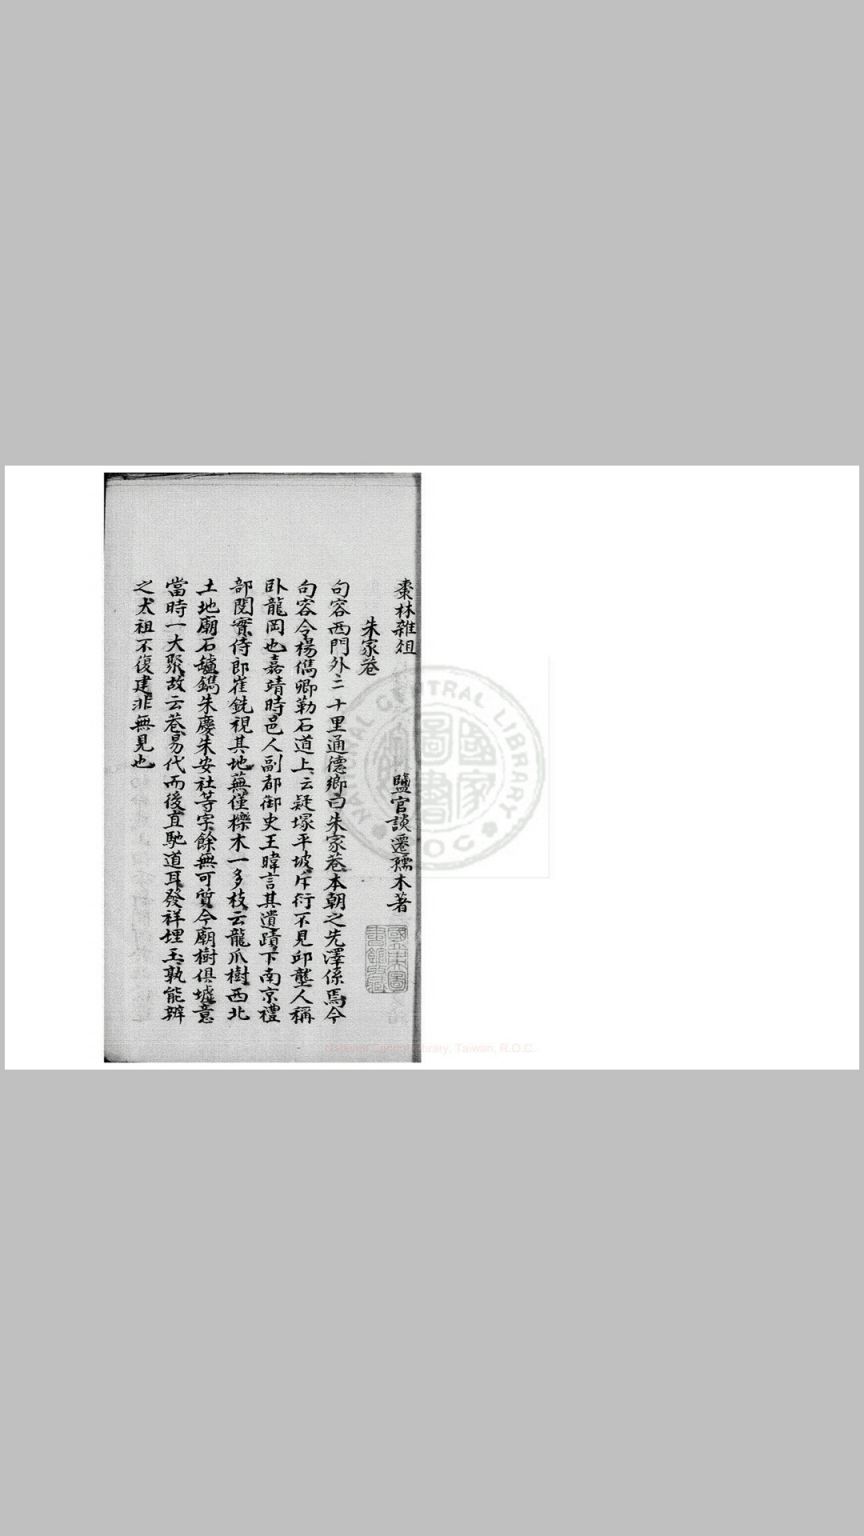 棗林雜俎
鹽官談遷孺木著
朱家巷
句容西門外三十里通德鄉曰朱家巷本朝之先澤係焉今
句容令楊儁卿勒石道上云疑塚平坡斥衍不見邱壟人稱
卧龍岡也嘉靖時邑人副都御史王暐言其遺蹟下南京禮
部閱實侍郎崔銑視其地蕪僅櫟木一多枝云龍爪樹西北
土地廟石罏鐫朱慶朱安社等字餘無可質今廟樹俱墟意
當時一大聚故云巷易代而後直馳道耳發祥埋玉孰能辨
之太祖不復建非無見也
NATIONAL CENTRAL LIBRARY
R.O.C.
國家圖書館
National Central Library, Taiwan, R.O.C.